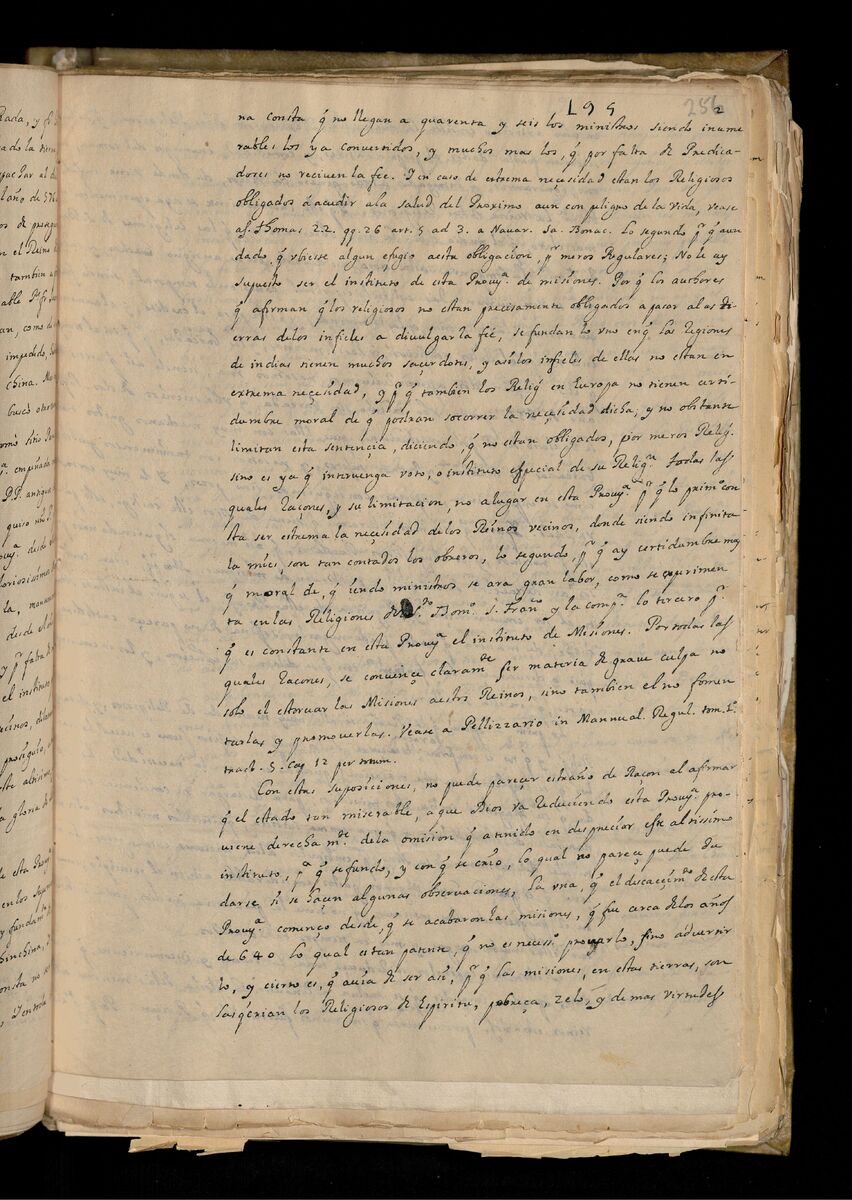 195
256
2
na consta q̃ no llegan a quarenta y seis los ministros siendo inume
rables los ya convertidos, y muchos mas los, q̃ por falta de Predica-
dores no reciven la fee. Y en caso de extrema neçesidad estan los Religiosos
obligados á acudir ala salud del Proximo aun con peligro de la Vida, vease
a S. Thomas 2.2. qq. 26 art. 5 ad 3. a Nauar. Sa. Bonac. Lo segundo pr q̃ aun
dado, q̃ vbiesse algun efugio aesta obligaçion, pr meros Regulares; No le ay
supuesto ser el instituto de esta Prouya. de misiones. Por q̃ los authores
q̃ afirman q̃ los religiosos no estan precisamente obligados a pasar alas ti-
erras delos infieles a divulgar la feé, se fundan lo vno enq̃ las regiones
de indias tienen muchos saçerdotes, y asi los infieles de ellas no estan en
extrema neçesidad, y pr q̃ tambien los Religs en Europa no tienen certi-
dumbre moral de q̃ podran socorrer la neçesidad dicha; y no obstante
limitan esta sentençia, diciendo, q̃ no estan obligados, por meros Religs.
sino es ya q̃ intervenga voto, o instituto espeçial de su Relign. todas las
quales raçones, y su limitacion, no a lugar en esta Prouya. pr q̃ lo primo con
sta ser estrema la neçesidad delos Reinos vecinos, donde siendo infinita
la mies, son tan contados los obreros, lo segundo, pr q̃ ay certidumbre muy
q̃ moral de, q̃ iendo ministros se ara gran labor, como se experimen
ta en las Religiones de Sto. Domo. S. Frano y la compa. lo tercero pr
q̃ es constante en esta Prouya el instituto de Misiones. Por todas las
quales raçones, se convençe claramte ser materia de graue culpa no
solo el estoruar las Misiones aestos Reinos, sino tambien el no fomen
tarlas y promouerlas. Vease a Pellizzario in Mannual. Regul. tom. 1o.
tract. 5. Cap 12 per totum.
Con estas suposiciones, no puede pareçer estraño de Raçon el afirmar
q̃ el estado tan miserable, a que Dios va reduciendo esta Prouya. pro-
uiene derechamte. dela omision q̃ a tenido en despreciar este altissimo
instituto, pa q̃ se fundo, y con q̃ se crio, lo qual no pareçe puede du
darse si se haçen algunas observaciones, la vna, q̃ el descaeçimto de esta
Prouya. començo desde, q̃ se acabaron las misiones, q̃ fue cerca delos años
de 640 lo qual es tan patente, q̃ no es necesso. prouarlo, sino advertir
lo, y cierto es, q̃ auia de ser asi, pr q̃ las misiones, en estas tierras, son
las q̃ crian los Religiosos de Espiritu, pobreça, zelo, y demas virtudes